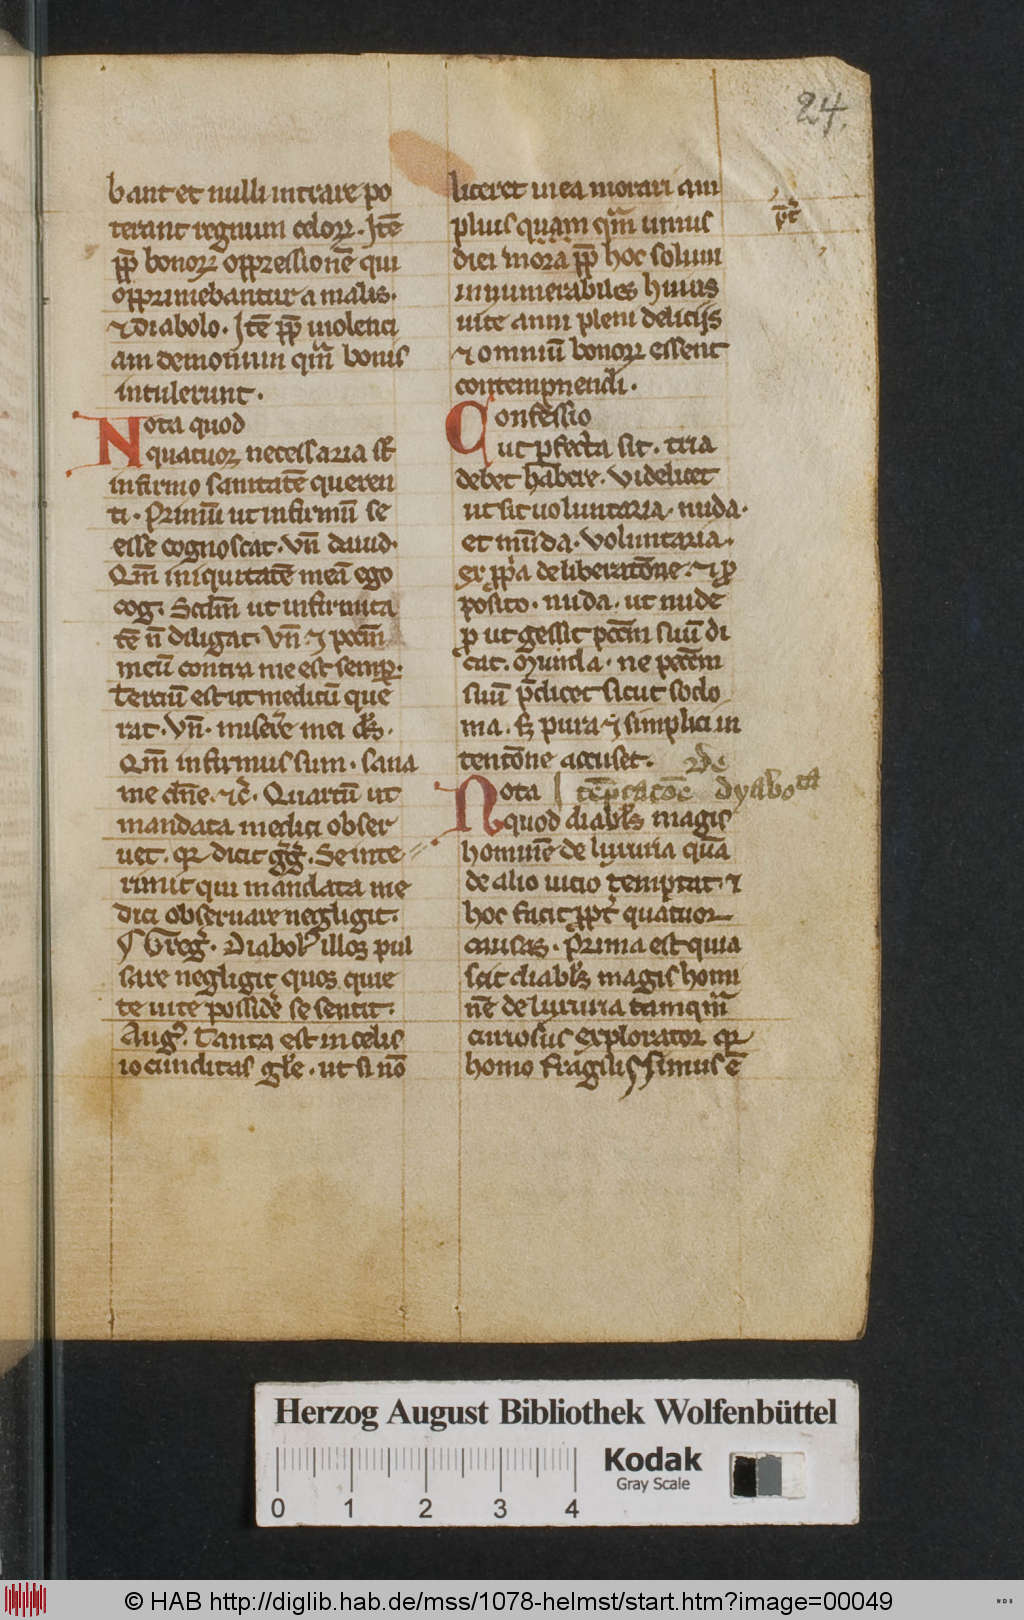 24.
bant et nulli intrare po
terant regnum celoꝝ. Itē
ꝓp̄ bonoꝝ oppressionē qui
opprimebantur a malis.
⁊ diabolo. Itē ꝓp̄ uiolenci
am demonium qm̄ bonis
intulerunt.
Nota quod
quatuor necessaria st̄
infirmo sanitatē queren
ti. Primū ut infirmū se
esse cognoscat. Vn̄ dauid.
Qm̄ iniquitatē meā ego
cog. Scd̄m ut infirmita
tē n̄ diligat. Vn̄ ⁊ pccm̄
meū contra me est semꝑ.
Terciū est ut medicū que
rat. Vn̄. miserē mei ds̄.
Qm̄ infirmus sum. sana
me dn̄e. ⁊c̄. Quartū ut
mandata medici obser
uet. qr dicit gḡ. Se inte
rimit qui mandata me
dici obseruare negligit.
¶ Greḡ. Diabolꝰ illos pul
sare negligit quos quie
te uite possidēr se sentit.
Augꝰ. Tanta est in celis
iocunditas gl̄e. ut si nō
liceret in ea morari am
plius quam qm̄ unius
diei morā ꝓp̄ hoc solum
innumerabiles huius
uite anni pleni delicijs
⁊ omniū bonoꝝ essent
contempnendi.
Confessio
ut ꝑfecta sit. tria
debet habere. videlicet
ut sit uoluntaria. nuda.
et mūda. Voluntaria.
ex ꝓp̄a deliberatōne. ⁊ ꝓ
posito. nuda. ut nude
ꝓ ut gessit pccm̄ suū di
cat. Munda. ne pccm̄
suū p̄dicet sicut sodo
ma. sꝫ pura ⁊ simplici in
tentōne accuset. De
Nota tēptatōe dyabo
quod diabl̄s magis
hominē de luxuria quā
de alio uicio temptat. ⁊
hoc facit ꝓpt̄ quatuor
causas. Prima est quia
scit diabl̄s magis homi
nē de luxuria tamqm̄
curiosus explorator qr
homo fragilissimus ē
Herzog August Bibliothek Wolfenbüttel
Kodak
Gray Scale
0 1 2 3 4
© HAB http://diglib.hab.de/mss/1078-helmst/start.htm?image=00049